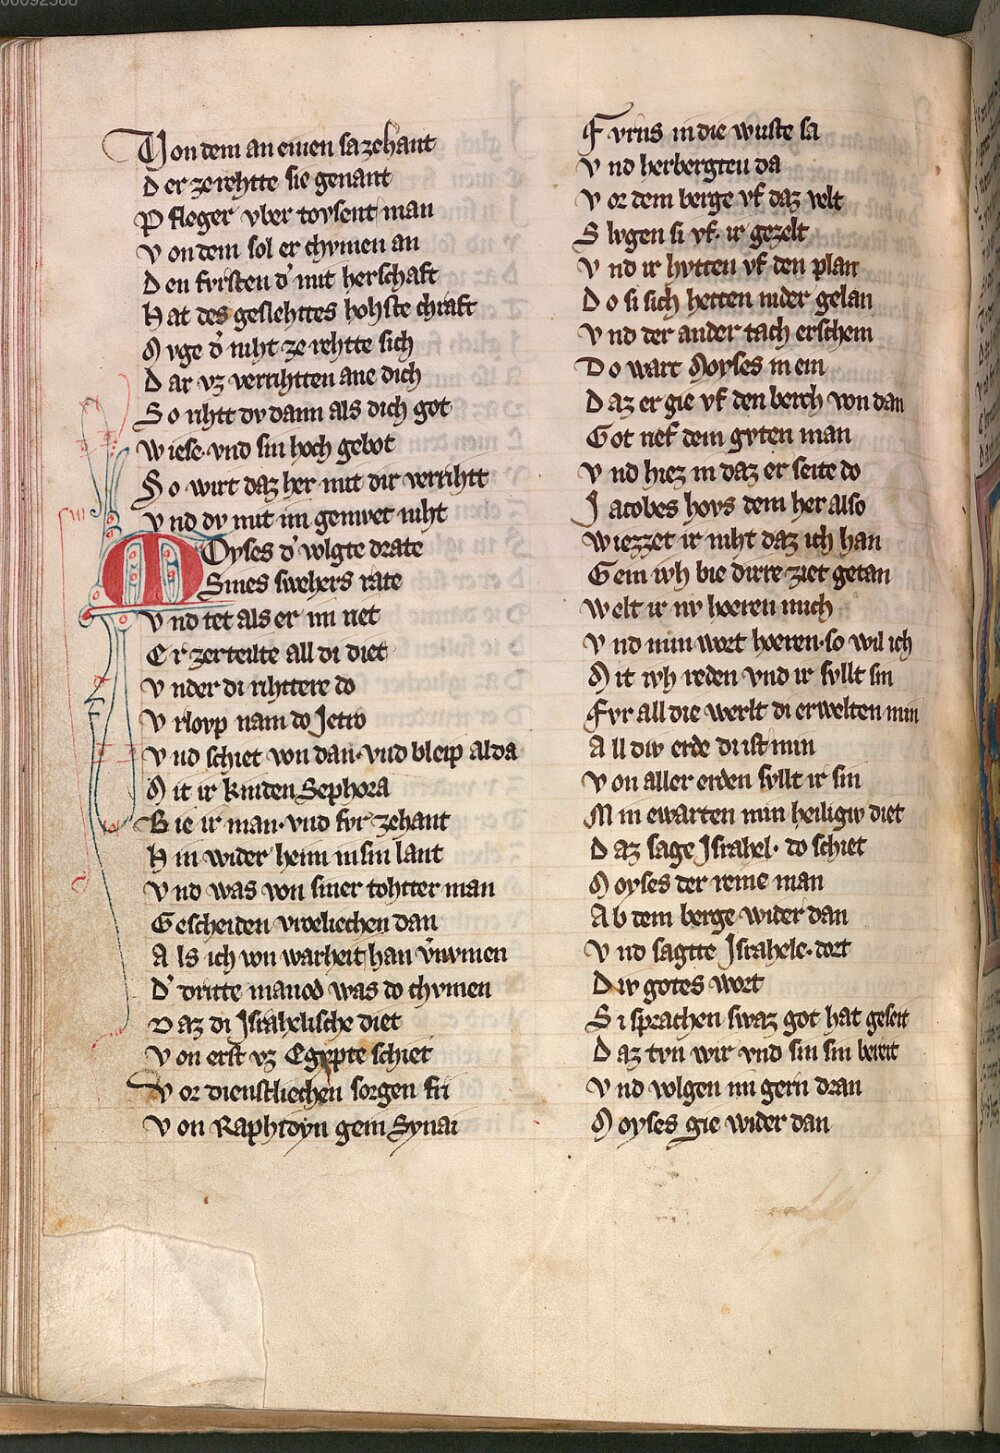 00092588
Von dem an einen sazehant
Der ze rehtte sie genant
Pfleger vber tovsent man
Von dem sol er chvmen an
Den fvrsten d' mit herschaft
Hat des geslehttes hohste chraft
Mvge d' niht ze rehtte sich
Dar vz verrihtten ane dich
So rihtt dv dann als dich got
Wiese · vnd sin hoch gebot
So wirt daz her mit dir verrihtt
Vnd dv mit im gemvet niht
Moyses d' volgte drate
Sines swehers rate
Vnd tet als er im riet
Er zerteilte all di diet
Vnder di rihttere do
Vrlovp nam do Jetro
Vnd schiet von dan · vnd bleip alda
Mit ir kinden Sephora
Bie ir man · vnd fvr zehant
Hin wider heim in sin lant
Vnd was von siner tohtter man
Gescheiden vroeliechen dan
Als ich von warheit han v'nvmen
D' dritte manod was do chvmen
Daz di Jsrahelische diet
Von erst vz Egypte schiet
Vor dienstliechen sorgen fri
Von Raphidyn gein Synai
Fvrns in die wuste sa
Vnd herbergten da
Vor dem berge vf daz velt
Slvgen si vf · ir gezelt
Vnd ir hvtten vf den plan
Do si sich hetten nider gelan
Vnd der ander tach erschein
Do wart Moyses in ein
Daz er gie vf den berch von dan
Got rief dem gvten man
Vnd hiez in daz er seite do
Jacobes hovs dem her also
Wiezzet ir niht daz ich han
Gein ivh bie dirre ziet getan
Welt ir nv hoeren mich
Vnd min wort hoeren · so wil ich
Mit ivh reden vnd ir svllt sin
Fvr all die werlt di erwelten min
All div erde di ist min
Von aller erden svllt ir sin
Min ewarten min heiligiv diet
Daz sage Jsrahel · do schiet
Moyses der reine man
Ab dem berge wider dan
Vnd sagtte Jsrahele · dort
Div gotes wort
Si sprachen swaz got hat geseit
Daz tvn wir vnd sin sin bereit
Vnd volgen im gern dran
Moyses gie wider dan